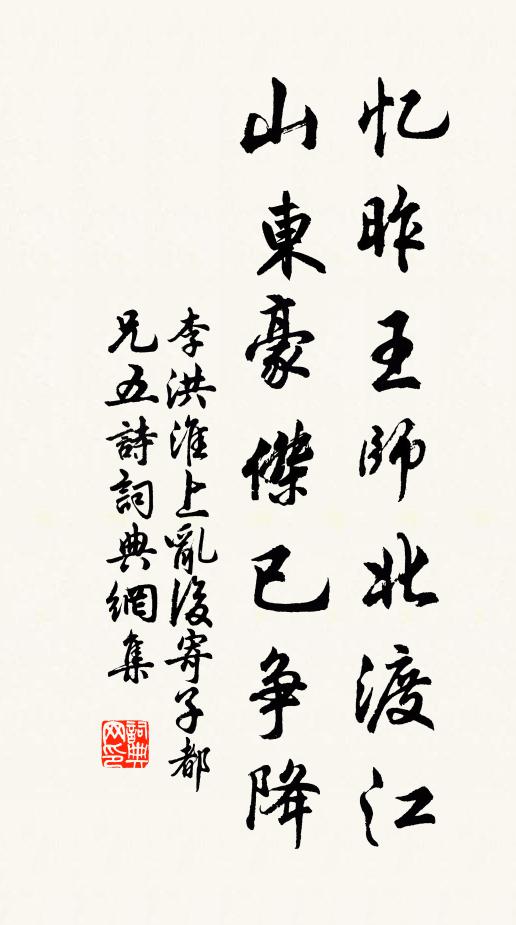 忆昨王师北渡江
山東豪傑已争降
李洪淮上亂後寄子都
兄五詩詞典網集
詞典網印